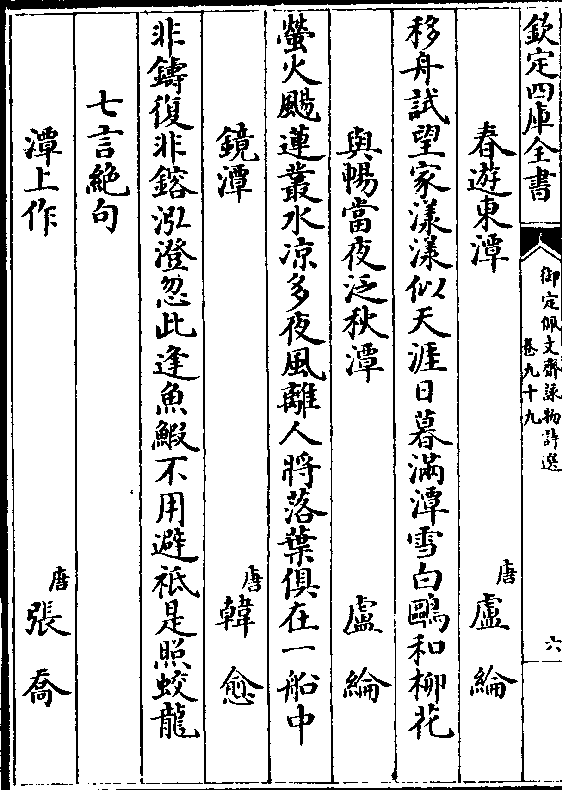 欽定四庫全書
御定佩文齋詠物詩選
卷九十九
六
春遊東潭 唐 盧綸
移舟試望家漾漾似天涯日暮滿潭雪白鷗和柳花
與暢當夜泛秋潭 盧綸
螢火颺蓮叢水凉多夜風離人將落葉俱在一船中
鏡潭 唐 韓愈
非鑄復非鎔泓澄忽此逢魚鰕不用避祗是照蛟龍
七言絶句
潭上作 唐 張喬